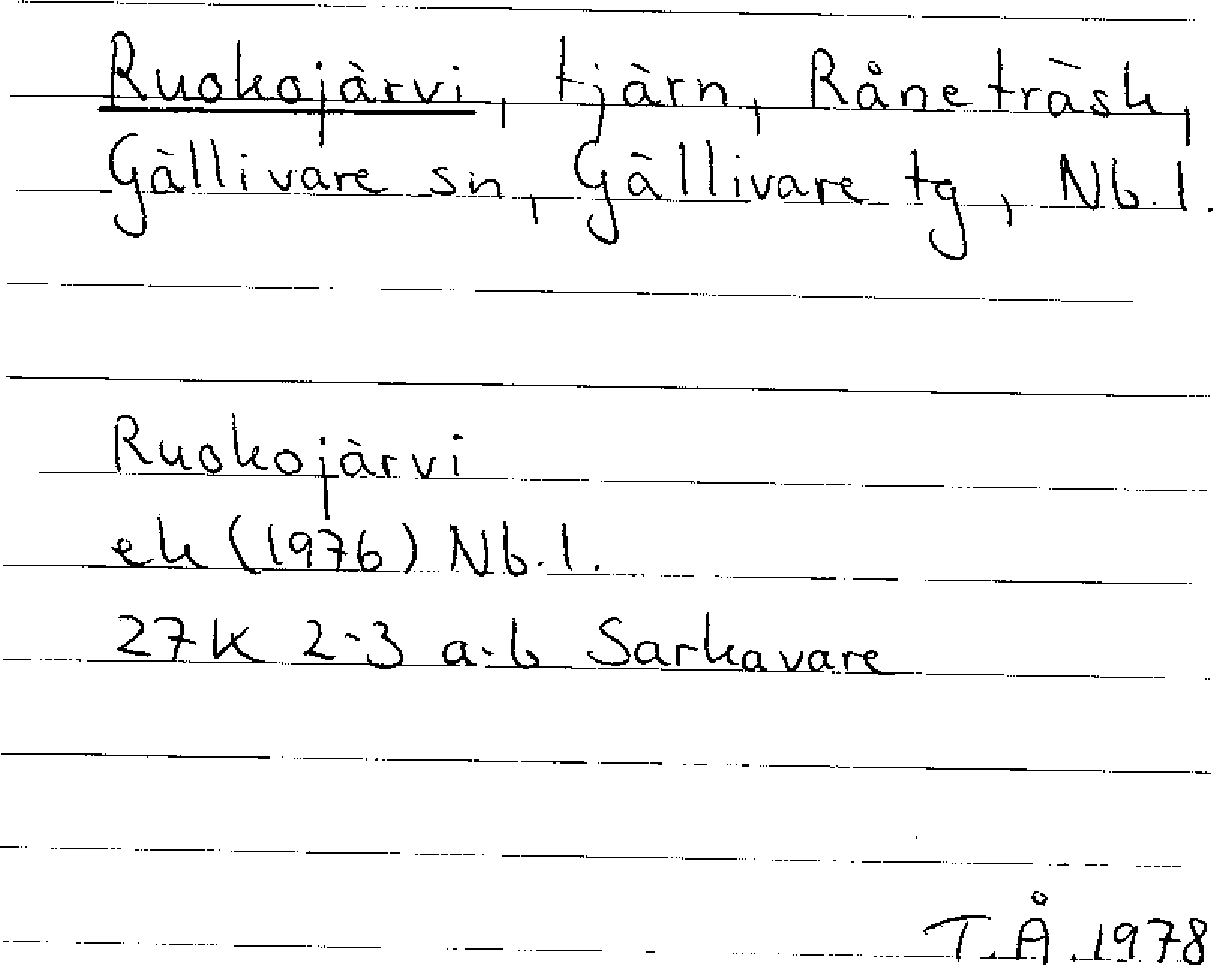 Ruokojärvi, tjärn, Råneträsk,
Gällivare sn, Gällivare tg, Nb.l.
Ruokojärvi
ek (1976) Nb.l.
27K 2-3 a-b Sarkavare
T.Å.1978